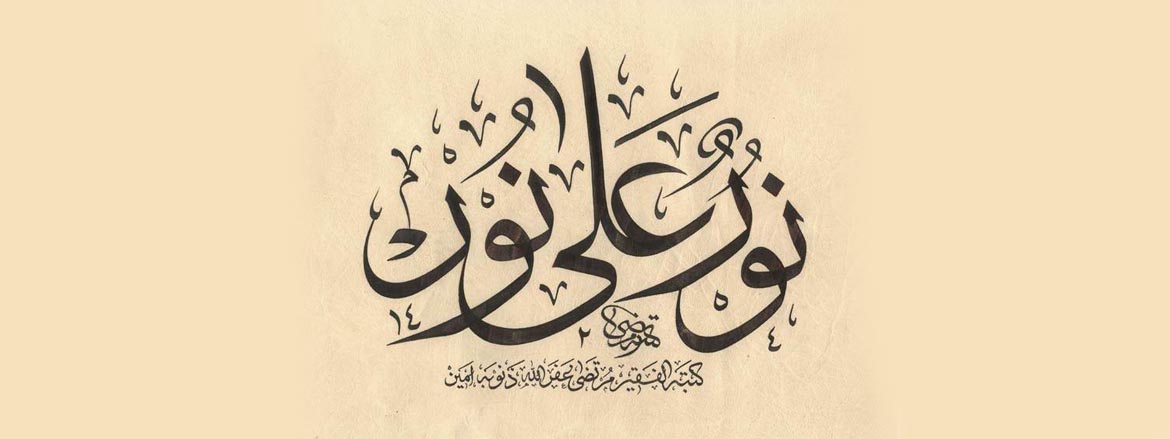 نُورٌ عَلَى نُورٍ
١٤ ٢ ٤
كتبه الفقير مرتضى غفر الله ذنوبه امين